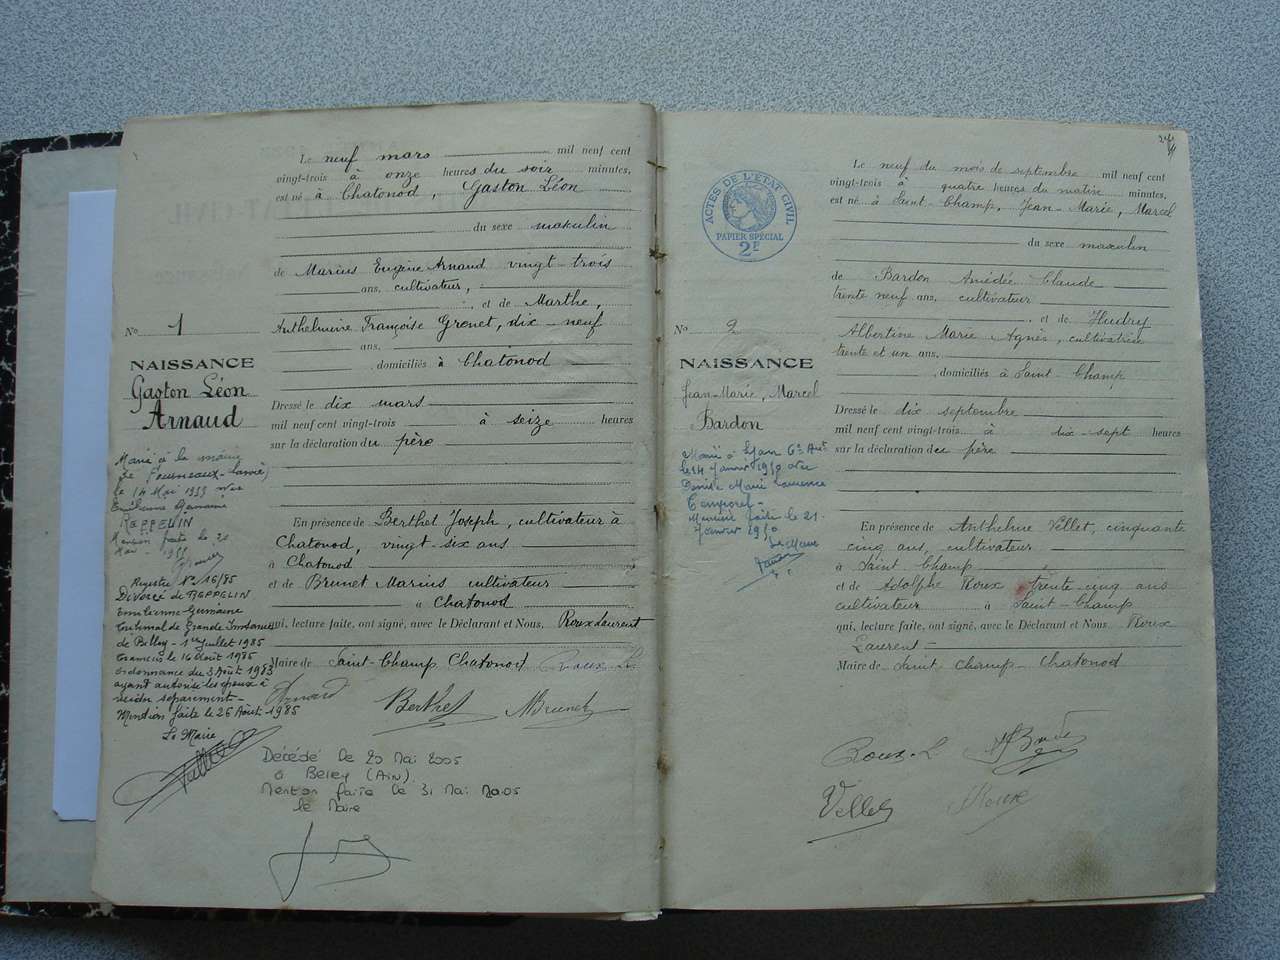 Le neuf mars mil neuf cent
vingt-trois à onze heures du soir minutes,
est né à Chatonod, Gaston Léon
du sexe masculin
de Marius Eugène Arnaud vingt trois
ans, cultivateur,
et de Marthe,
Anthelmine Françoise Grenet, dix-neuf
ans,
domiciliés à Chatonod
Dressé le dix mars
mil neuf cent vingt-trois à seize heures
sur la déclaration du père
En présence de Berthet Joseph, cultivateur à
Chatonod, vingt-six ans
à Chatonod
et de Brunet Marius cultivateur
à Chatonod
qui, lecture faite, ont signé, avec le Déclarant et Nous, Roux Laurent
Maire de Saint-Champ Chatonod Roux L.
Arnaud Berthet M Brunet
No 1
NAISSANCE
Gaston Léon
Arnaud
Marié à la mairie
de
le 14 Mai
Emilienne Germaine
REPPELIN
Mention faite le 20
Mai
Registre No 16/85
Divorcé de REPPELIN
Emilienne Germaine
tribunal de Grande Instance
de Belley - 1er Juillet 1985
transcris le 16 Août 1985
ordonnance du 3 Août 1983
ayant autorisé les époux à
résider séparément -
Mention faite le 26 Août 1985
Le Maire
Décédé le 29 Mai 2005
à Belley (Ain)
Mention faite le 31 Mai 2005
le Maire
24
ACTES DE L'ÉTAT CIVIL
PAPIER SPÉCIAL
2F
Le neuf du mois de septembre mil neuf cent
vingt-trois à quatre heures du matin minutes,
est né à Saint-Champ, Jean-Marie, Marcel
du sexe masculin
de Bardon Amédée Claude
trente neuf ans, cultivateur
et de Heudry
Albertine Marie Agnès, cultivatrice
trente et un ans,
domiciliés à Saint-Champ
Dressé le dix septembre
mil neuf cent vingt-trois à dix-sept heures
sur la déclaration du père
En présence de Anthelme Vellet, cinquante
cinq ans, cultivateur
à Saint Champ
et de Adolphe Roux trente-cinq ans
cultivateur à Saint-Champ
qui, lecture faite, ont signé, avec le Déclarant et Nous, Roux
Laurent
Maire de Saint Champ-Chatonod
Roux L
Vellet Roux
No 2
NAISSANCE
Jean-Marie, Marcel
Bardon
Marié à Lyon 6e Arrt
le 14 Janvier 1950 avec
Denise Marie Laurence
Mention faite le 21
Janvier 1950
Le Maire